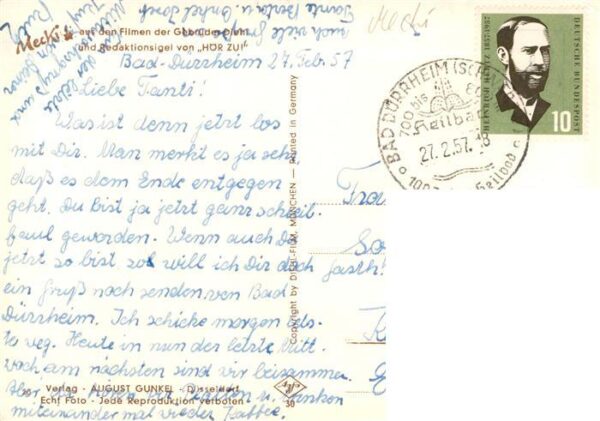 Mecki
Mecki
aus den Filmen der Gebrüder Diehl
und Redaktionsigel von „HÖR ZU!"
auch viele Grüße
Tante Berta u. Onkel
Bad-Dürrheim 27. Feb. 57
Liebe Tanti!
Was ist denn jetzt los
mit Dir. Man merkt es ja sehr
daß es dem Ende entgegen
geht. Du bist ja jetzt ganz schreib-
faul geworden. Wenn auch Du
jetzt so bist so will ich Dir doch
ein Gruß noch senden von Bad
Dürrheim. Ich schicke morgen
weg. Heute in nun der letzte Mitt-
woch am nächsten sind wir beisammen.
Aber da hören wir Platten u. trinken
miteinander mal wieder Kaffee.
Verlag - AUGUST GUNKEL - Düsseldorf
Echt Foto - Jede Reproduktion verboten
Copyright by DIEHL-FILM, MÜNCHEN — Printed in Germany
30
BAD DÜRRHEIM (SCHWARZW
700 bis 800
Heilbad
27.2.57.-18
Heilbad
HEINRICH HERTZ
DEUTSCHE BUNDESPOST
10